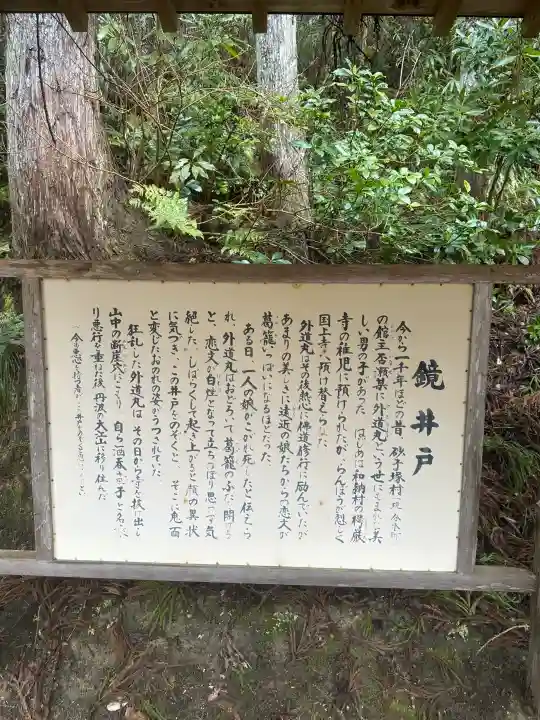 鏡井戸
今から一千年ほどの昔 砂子塚村
の館主石瀬某に外道丸という世にもまれな美
しい男の子があった はじめは和納村の楞厳
寺の稚児に預けられたが らんぼうが烈しく
国上寺へ預け替えられた
外道丸はその後熱心に佛道修行に励んでいたが
あまりの美しさに遠近の娘たちからの恋文が
葛籠いっぱいになるほどだった
ある日 一人の娘がこがれ死したと伝えら
れ 外道丸はおどろいて葛籠のふたを開ける
と、恋文が白煙となって立ちのぼり 思わず気
絶した、しばらくして起き上がると顔の異状
に気づき、この井戸をのぞくと、そこに鬼面
と変じたおのれの姿がうつされていた
狂乱した外道丸は その日から寺を抜け出し
山中の断崖穴にこもり 自ら酒呑童子と名
り悪行を重ねた後 丹波の大江に移り住んだ